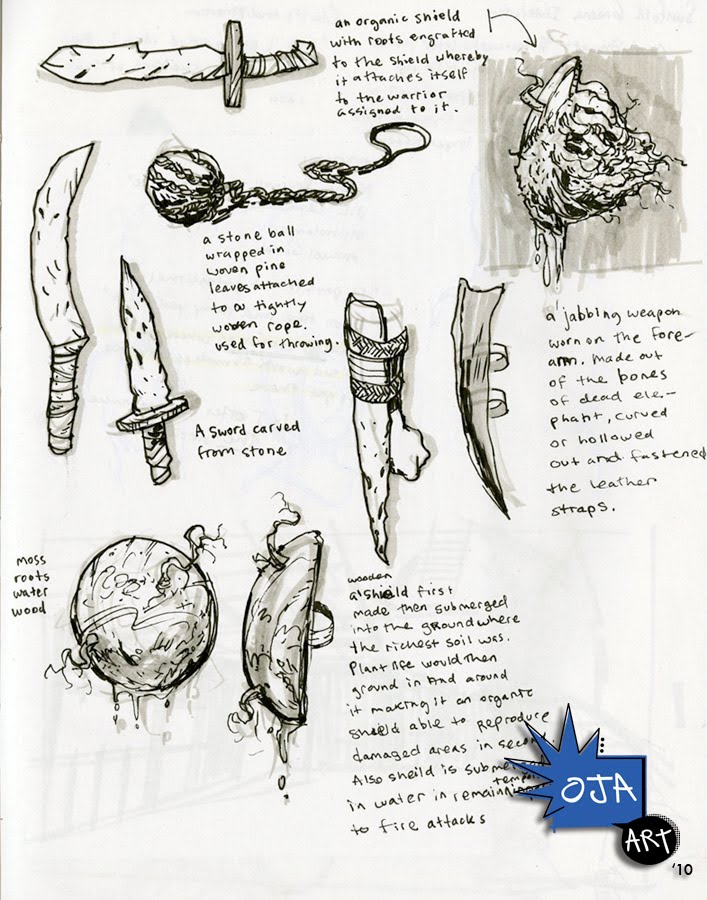 an organic shield
with roots engrafted
to the shield whereby
it attaches itself
to the warrior
assigned to it.
a stone ball
wrapped in
woven pine
leaves attached
to a tightly
woven rope.
used for throwing.
A sword carved
from stone
a jabbing weapon
worn on the fore-
arm. Made out
of the bones
of dead ele-
phant, curved
or hollowed
out and fastened
the leather
straps.
moss
roots
water
wood
wooden
a shield first
made then submerged
into the ground where
the richest soil was.
Plant life would then
ground in and around
it making it an organic
shield able to reproduce
damaged areas in
Also sheild is
in water in
to fire attacks
OJA
ART
'10